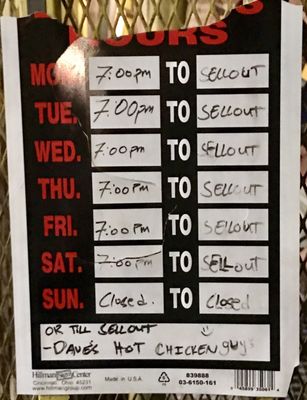 HOURS
MON. 7:00pm TO SELLOUT
TUE. 7:00pm TO SELLOUT
WED. 7:00pm TO SELLOUT
THU. 7:00pm TO SELLOUT
FRI. 7:00pm TO SELLOUT
SAT. 7:00pm TO SELLOUT
SUN. Closed. TO Closed
OR TILL SELLOUT
- DAVE'S HOT CHICKEN guys
Hillman Center
Cincinnati, Ohio 45231
www.hillmangroup.com
MADE IN U.S.A.
839888
03-6150-161